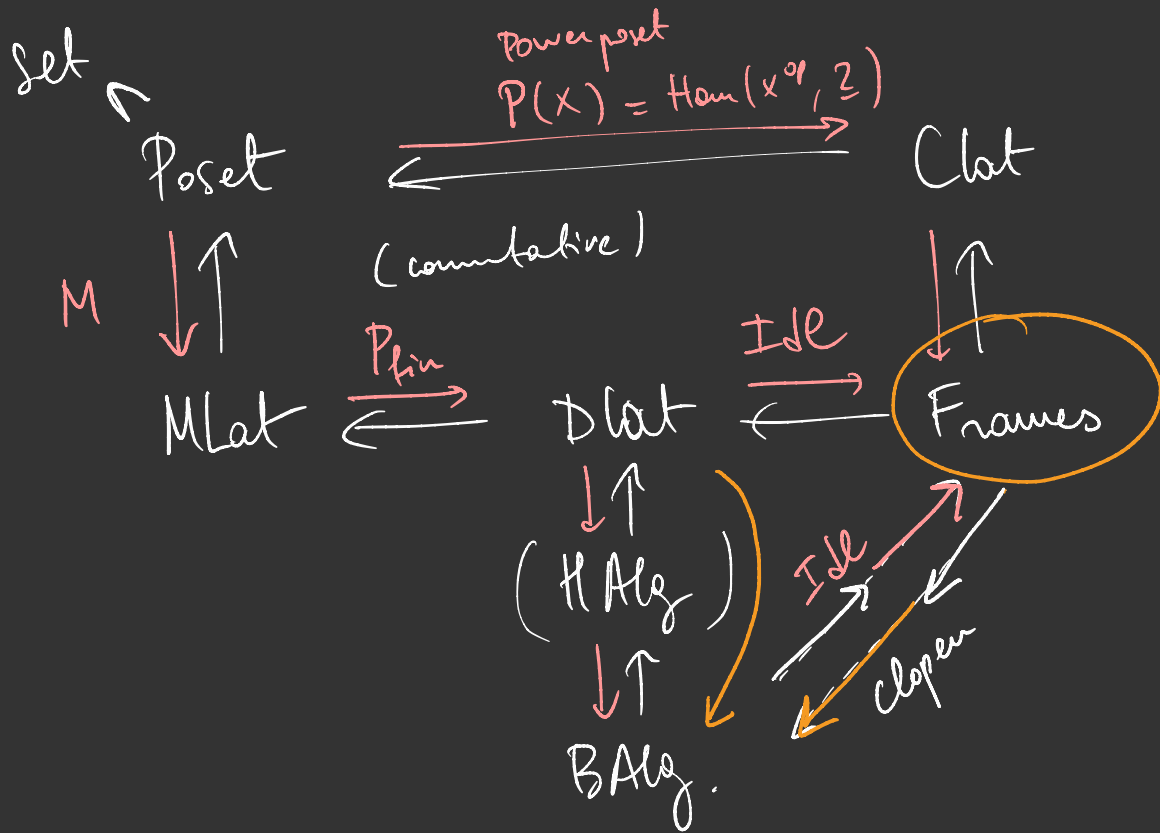 Set
Power poset
P(X) = Hom(X^op, 2)
Poset
Clat
(commutative)
M
P_fin
Idl
MLat
Dlat
Frames
(HAlg)
Idl
clopen
BAlg.